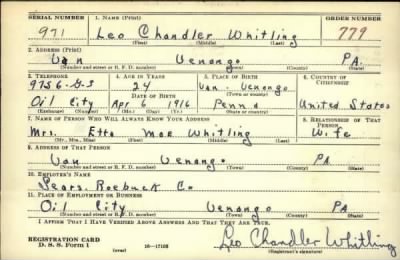 SERIAL NUMBER 1. NAME (Print) ORDER NUMBER
971 Leo Chandler Whitling 779
(First) (Middle) (Last)
2. ADDRESS (Print)
Van Venango PA.
(Number and street or R. F. D. number) (Town) (County) (State)
3. TELEPHONE 4. AGE IN YEARS 5. PLACE OF BIRTH 6. COUNTRY OF CITIZENSHIP
9756-G-3 24 Van. Venango
DATE OF BIRTH (Town or county)
Oil City Apr 6 1916 Penna United States
(Exchange) (Number) (Mo.) (Day) (Yr.) (State or country)
7. NAME OF PERSON WHO WILL ALWAYS KNOW YOUR ADDRESS 8. RELATIONSHIP OF THAT PERSON
Mrs. Etta Mae Whitling Wife
(Mr., Mrs., Miss) (First) (Middle) (Last)
9. ADDRESS OF THAT PERSON
Van Venango PA
(Number and street or R. F. D. number) (Town) (County) (State)
10. EMPLOYER'S NAME
Sears. Roebuck Co
11. PLACE OF EMPLOYMENT OR BUSINESS
Oil City Venango PA
(Number and street or R. F. D. number) (Town) (County) (State)
I AFFIRM THAT I HAVE VERIFIED ABOVE ANSWERS AND THAT THEY ARE TRUE.
REGISTRATION CARD
D. S. S. Form 1 (over) 16—17105 Leo Chandler Whitling
(Registrant's signature)